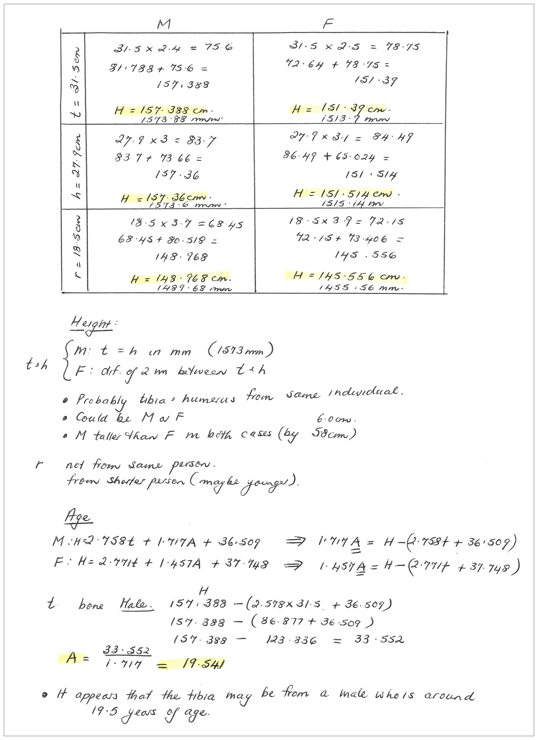 M F
t = 31.5cm
31.5 x 2.4 = 75.6
81.788 + 75.6 =
157.388
H = 157.388 cm.
1573.88 mm.
31.5 x 2.5 = 78.75
72.64 + 78.75 =
151.39
H = 151.39 cm.
1513.9 mm
h = 27.9cm
27.9 x 3 = 83.7
83.7 + 73.66 =
157.36
H = 157.36 cm.
1573.6 mm.
27.9 x 3.1 = 84.49
86.49 + 65.024 =
151.514
H = 151.514 cm.
1515.14 m
r = 18.5cm
18.5 x 3.7 = 68.45
68.45 + 80.518 =
148.968
H = 148.968 cm.
1489.68 mm
18.5 x 3.9 = 72.15
72.15 + 73.406 =
145.556
H = 145.556 cm.
1455.56 mm.
Height:
t+h
M: t = h in mm (1573mm)
F: dif. of 2 m between t + h
• Probably tibia + humerus from same individual.
• Could be M or F
• M taller than F in both cases (by 58cm) 6.0cm.
r not from same person.
from shorter person (maybe younger).
Age
M: H=2.758t + 1.717A + 36.509 ⇒ 1.717A = H-(2.758t + 36.509)
F: H = 2.771t + 1.457A + 37.748 ⇒ 1.457A = H-(2.771t + 37.748)
H
t bone Male. 157.388 - (2.578x31.5 + 36.509)
157.388 - (86.877 + 36.509)
157.388 - 123.836 = 33.552
A = 33.552 / 1.717 = 19.541
• It appears that the tibia may be from a male who is around
19.5 years of age.